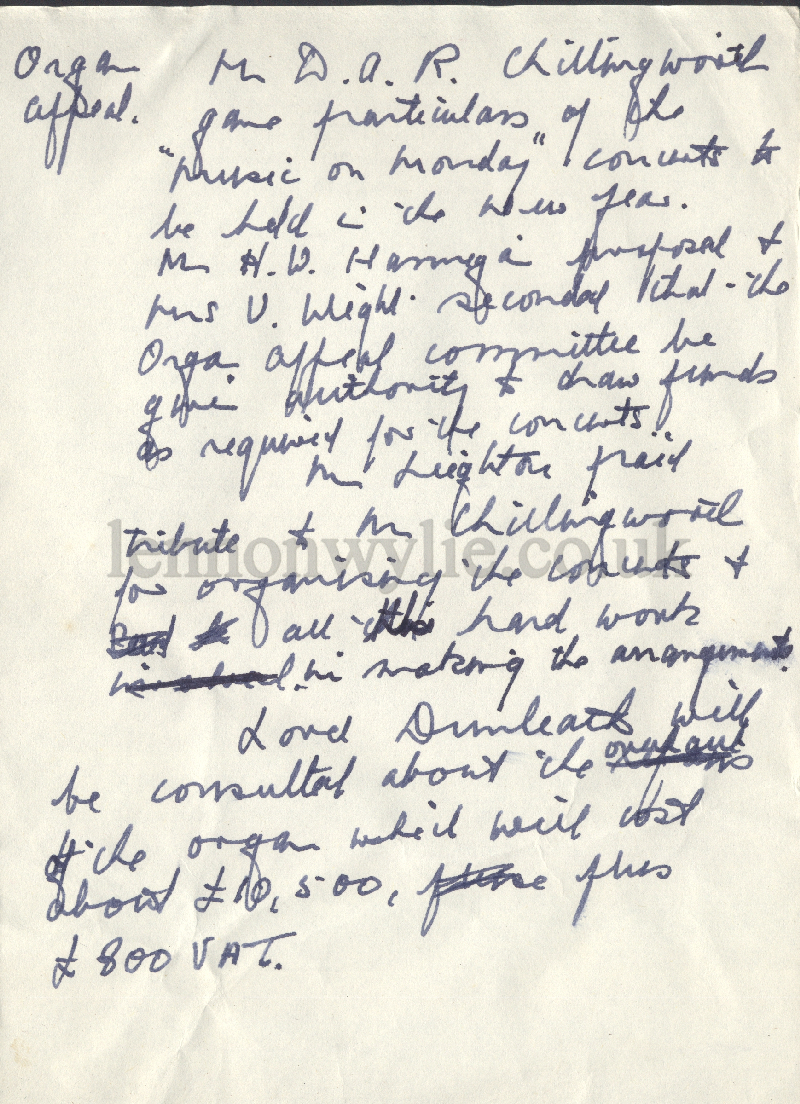 Organ Mr D. A. R. Chillingworth
appeal. gave particulars of the
"Music on Monday" concerts to
be held in the New Year.
Mr H. W. proposed &
Mrs V. Wight seconded that the
Organ appeal committee be
given authority to draw funds
as required for the concerts
Mr Leighton paid
tribute to Mr Chillingworth
lennonwylie.co.uk
for organising the concerts &
all his hard work
in making the arrangements.
Lord Dunleath will
be consulted about the overhaul
of the organ which will cost
about £10,500, plus
£800 VAT.